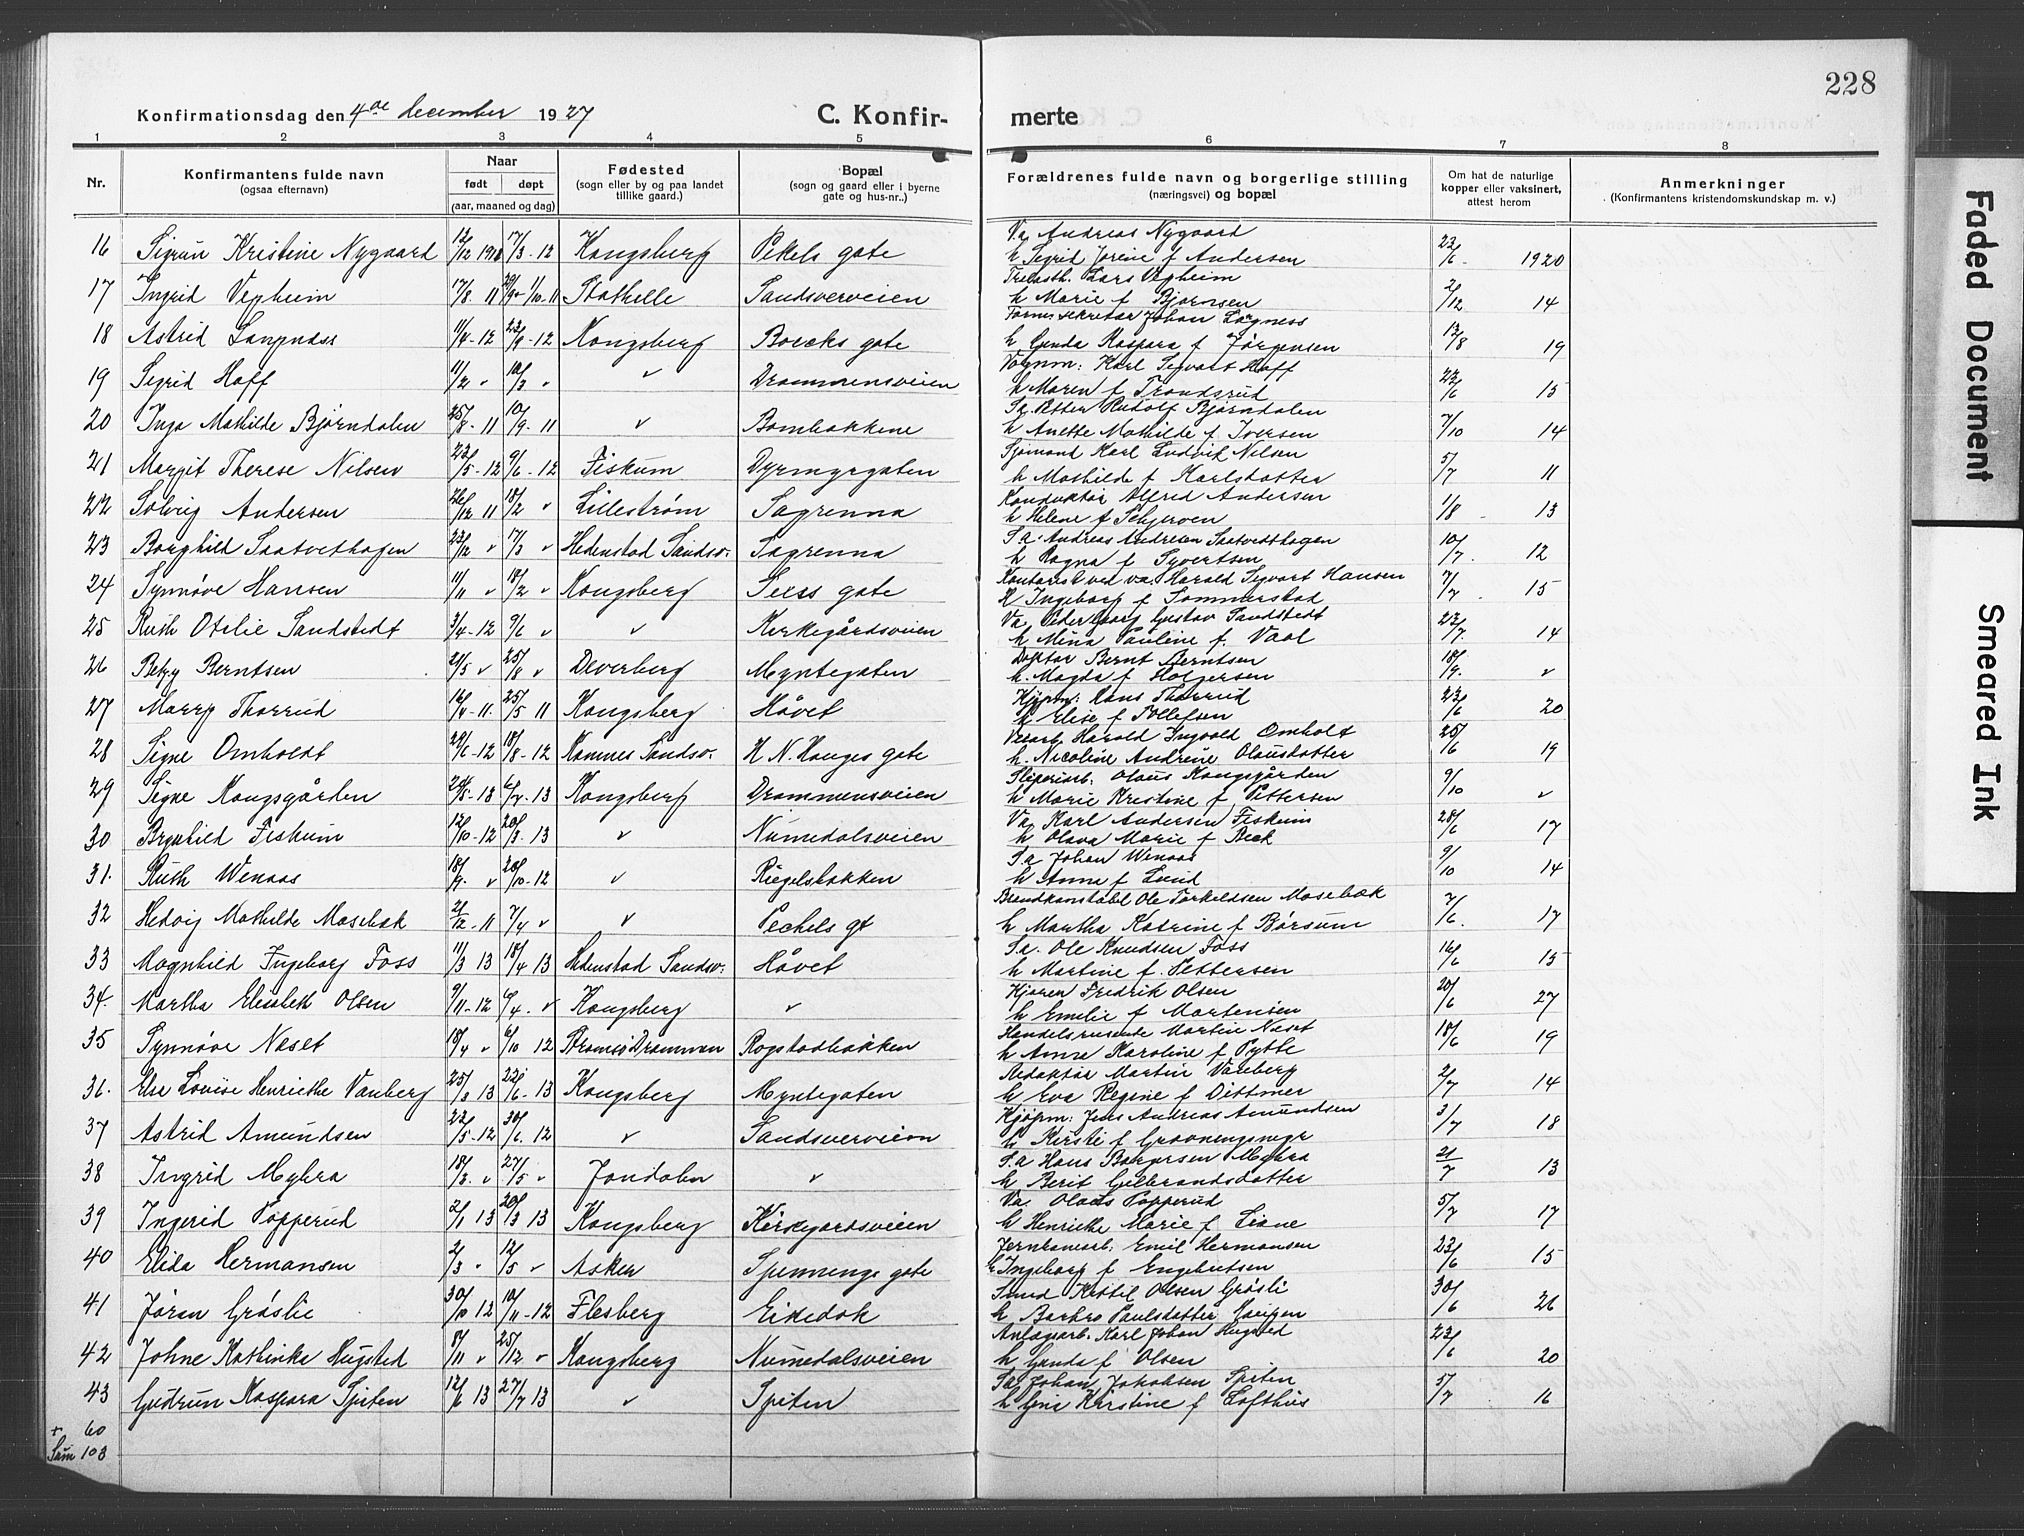 228
Konfirmationsdag den 4de december 1927
C. Konfirmerte
1 2 3 4 5 6 7 8
Nr.
Konfirmantens fulde navn
(ogsaa efternavn)
Naar
født døpt
(aar, maaned og dag)
Fødested
(sogn eller by og paa landet tillike gaard.)
Bopæl
(sogn og gaard eller i byerne gate og hus-nr..)
Forældrenes fulde navn og borgerlige stilling
(næringsvei) og bopæl
Om hat de naturlige kopper eller vaksinert, attest herom
Anmerkninger
(Konfirmantens kristendomskundskap m. v.)
16 Sigrun Kristine Nygaard 12/12 1911 17/3-12 Kongsberg Pekels gate Va Andreas Nygaard
h Sigrid Jorine f Andersen 23/6 - 1920
17 Ingrid Vegheim 17/8 11 1/10-11 Stathelle Sandsverveien Trelasth. Lars Vegheim
h Marie f Bjørnsen 2/12 14
18 Astrid Langnæss 11/4-12 23/9-12 Kongsberg Boecks gate Johan Langness
h Gunda Kaspara f Jørgensen 13/8 19
19 Sigrid Hoff 11/2 " 10/3 " " Drammensveien Vognm: Karl Sigvart Hoff
h Maren f Trondsrud 23/6 15
20 Inga Mathilde Bjørndalen 25/8-11 10/9-11 " Bombakkene Sa. Petter Rudolf Bjørndalen
h Anette Mathilde f Iversen 7/10 14
21 Margit Therese Nilsen 23/5-12 9/6-12 Fiskum Dyrmyrgaten Sjømand Karl Ludvik Nilsen
h Mathilde f Karlsdatter 5/7 11
22 Solveig Andersen 26/12 11 18/2 " Lillestrøm Sagrenna Konduktør Alfred Andersen
h Helene f Schjerven 1/8 - 13
23 Borghild Saatvethagen 23/12 " 17/3 " Hedenstad Sandsv: Sagrenna S a. Andreas Andresen Saatvedthagen
h Ragna f Syvertsen 10/7. 12
24 Synnøve Hansen 11/11 " 18/2 " Kongsberg Seess gate Kontorist ved va. Harald Sigvart Hansen
h Ingeborg f Sommerstad 7/7. 15
25 Ruth Otelie Sandstedt 3/4-12 9/6 " " Kirkegårdsveien Va Gustav Sandstedt
h Mina Pauline f. Vaal 23/7. 14
26 Peky Berntsen 21/5 " 25/8 " Deverberg Myntegaten Doktor Bernt Berntsen
h. Magda f Holgersen 18/9. "
27 Marry Thorrud 16/4-11 25/5 11 Kongsberg Håvet Kjøpm: Hans Thorrud
h Elise f Tollefsen 23/6 20
28 Signe Omholdt 29/6-12 18/8-12 Komnes Sandsv: H N. Hauges gate Harald Ingvald Omholt
h. Nicoline Andrine Olausdatter 25/6 19
29 Signe Kongsgården 24/5-13 6/7-13 Kongsberg Drammensveien Sliperiarb: Olaus Kongsgården
h Marie Kristine f Pettersen 9/10 "
30 Brynhild Fiskum 12/10-12 20/3-13 " Numedalsveien Va Karl Andersen Fiskum
h Olava Marie f Beck 28/6 17
31. Ruth Wenaas 18/9. " 20/10-12 " Riegelsbakken S.a Johan Wenaas
h Anna f Lund 9/10 14
32 Hedvig Mathilde Mosebæk 21/12-11 7/4 " " Pechels gt Brandkonstabel Ole Torkeldsen Mosebæk
h Martha Katrine f Børsum 7/6. 17
33 Magnhild Ingeborg Foss 11/3 13 18/4 13 Hedenstad Sandsv: Håvet S.a. Ole Knudsen Foss
h Martine f. Pettersen 16/6 15
34. Martha Elisabeth Olsen 9/11-12 6/4. " Kongsberg " Kjøren Fredrik Olsen
h Emelie f Martensen 20/6 27
35 Synnøve Næset 18/4 " 6/10 12 Strømsø Drammen Rogstadbakken Handelsreisende Martin Næset
h Anna Karoline f Pytte 18/6 19
36. Else Lovise Henriethe Vanberg 25/3 13 22/6-13 Kongsberg Myntegaten Redaktør Martin Vanberg
h Eva Regine f Dittmer 2/7 14
37 Astrid Amundsen 23/5-12 30/6. 12 " Sandsverveien Kjøpm: Jens Andreas Amundsen
h Kirsti f Gravningsmyr 3/7 18
38 Ingrid Myhra 18/3. " 27/5 " Jondalen " S.a Hans Borgersen Myhra
h Berit Gulbrandsdatter 21/7 13
39 Ingerid Popperud 2/1 13 20/3 13 Kongsberg Kirkegardsveien Va. Olaus Popperud
h Henrikke Marie f Liane 5/7 17
40 Elida Hermansen 2/3 " 12/5 " Asker Spennings gate Jernbanearb: Emil Hermansen
h Ingeborg f Engebretsen 23/6 15
41 Jøran Gråslie 30/10 12 10/11-12 Flesberg Eikedok Smed Kittil Olsen Gråsli
h Barbro Paulsdatter 30/6 26
42 Johne Kathinka Hugsted 8/11 " 25/12 " Kongsberg Numedalsveien Anlægsarb. Karl Johan Hugsted
h Gunda f Olsen 23/6 20
43 Gudrun Kaspara Spiten 12/6 13 27/7 13 " Spiten Sa Johan Jakobsen Spiten
h. Gina Kirstine f Lofthus 5/7 16
+ 60
Sum 103
Faded Document
Smeared Ink